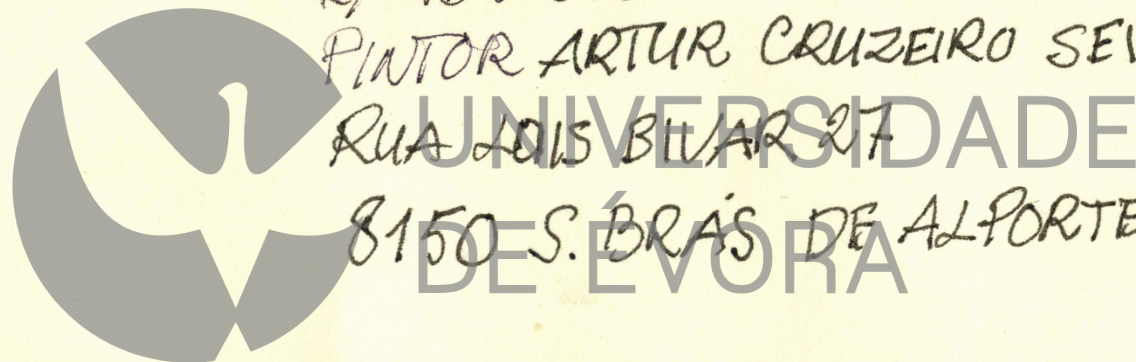 PINTOR ARTUR CRUZEIRO SE
RUA LUIS BIVAR 27
8150 S. BRÁS DE ALPORTE
UNIVERSIDADE
DE ÉVORA